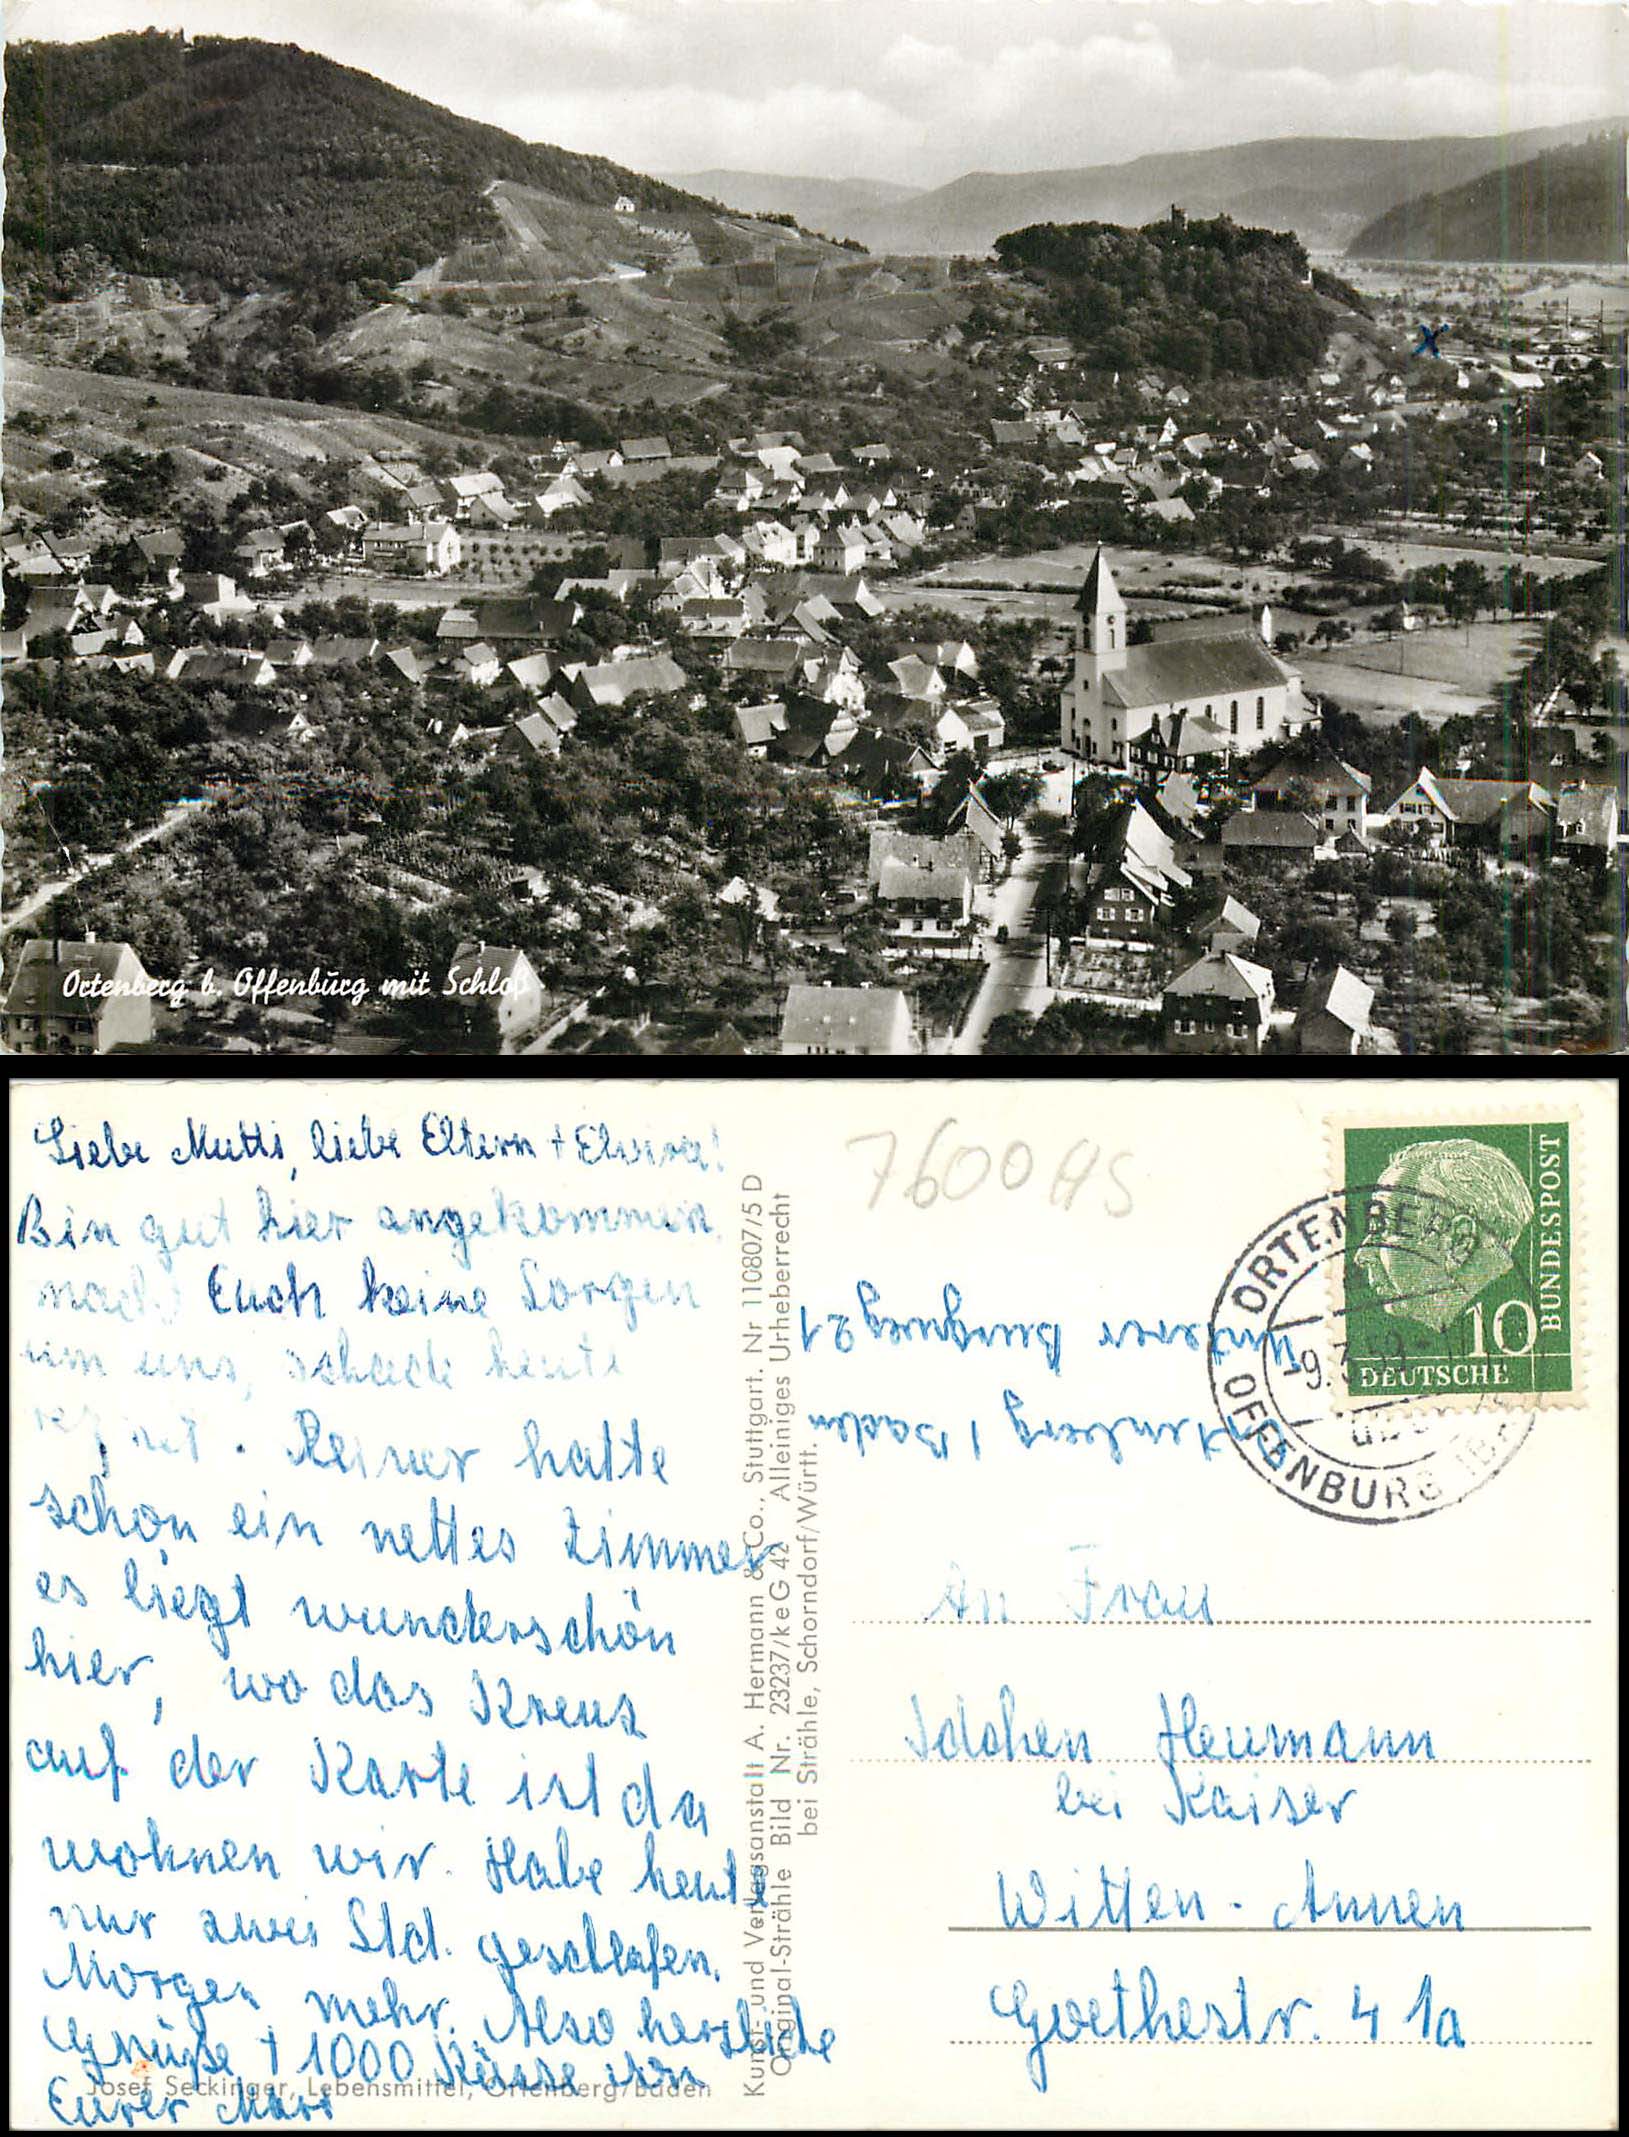 Ortenberg b. Offenburg mit Schloß
x
Liebe Mutti, liebe Eltern + Elvira!
Bin gut hier angekommen,
macht Euch keine Sorgen
um uns, schade heute
regnet. Reiner hatte
schon ein nettes Zimmer
es liegt wunderschön
hier, wo das Kreuz
auf der Karte ist da
wohnen wir. Habe heute
nur zwei Std. geschlafen.
Morgen mehr. Also herzliche
Grüße + 1000 Küsse von
Eurer
Josef Seckinger, Lebensmittel, Ortenberg/Baden
Kunst- und Verlagsanstalt A. Hermann & Co., Stuttgart. Nr 110807/5 D
Original-Strähle Bild Nr. 23237/keG 42 Alleiniges Urheberrecht
bei Strähle, Schorndorf/Württ.
7600 HS
Ortenberg / Baden
unterer Burgweg 21
DEUTSCHE
BUNDESPOST
10
ORTENBERG
-9.3.59-
über
OFFENBURG (B
An Frau
Idchen Heumann
bei Kaiser
Witten-Annen
Goethestr. 41a